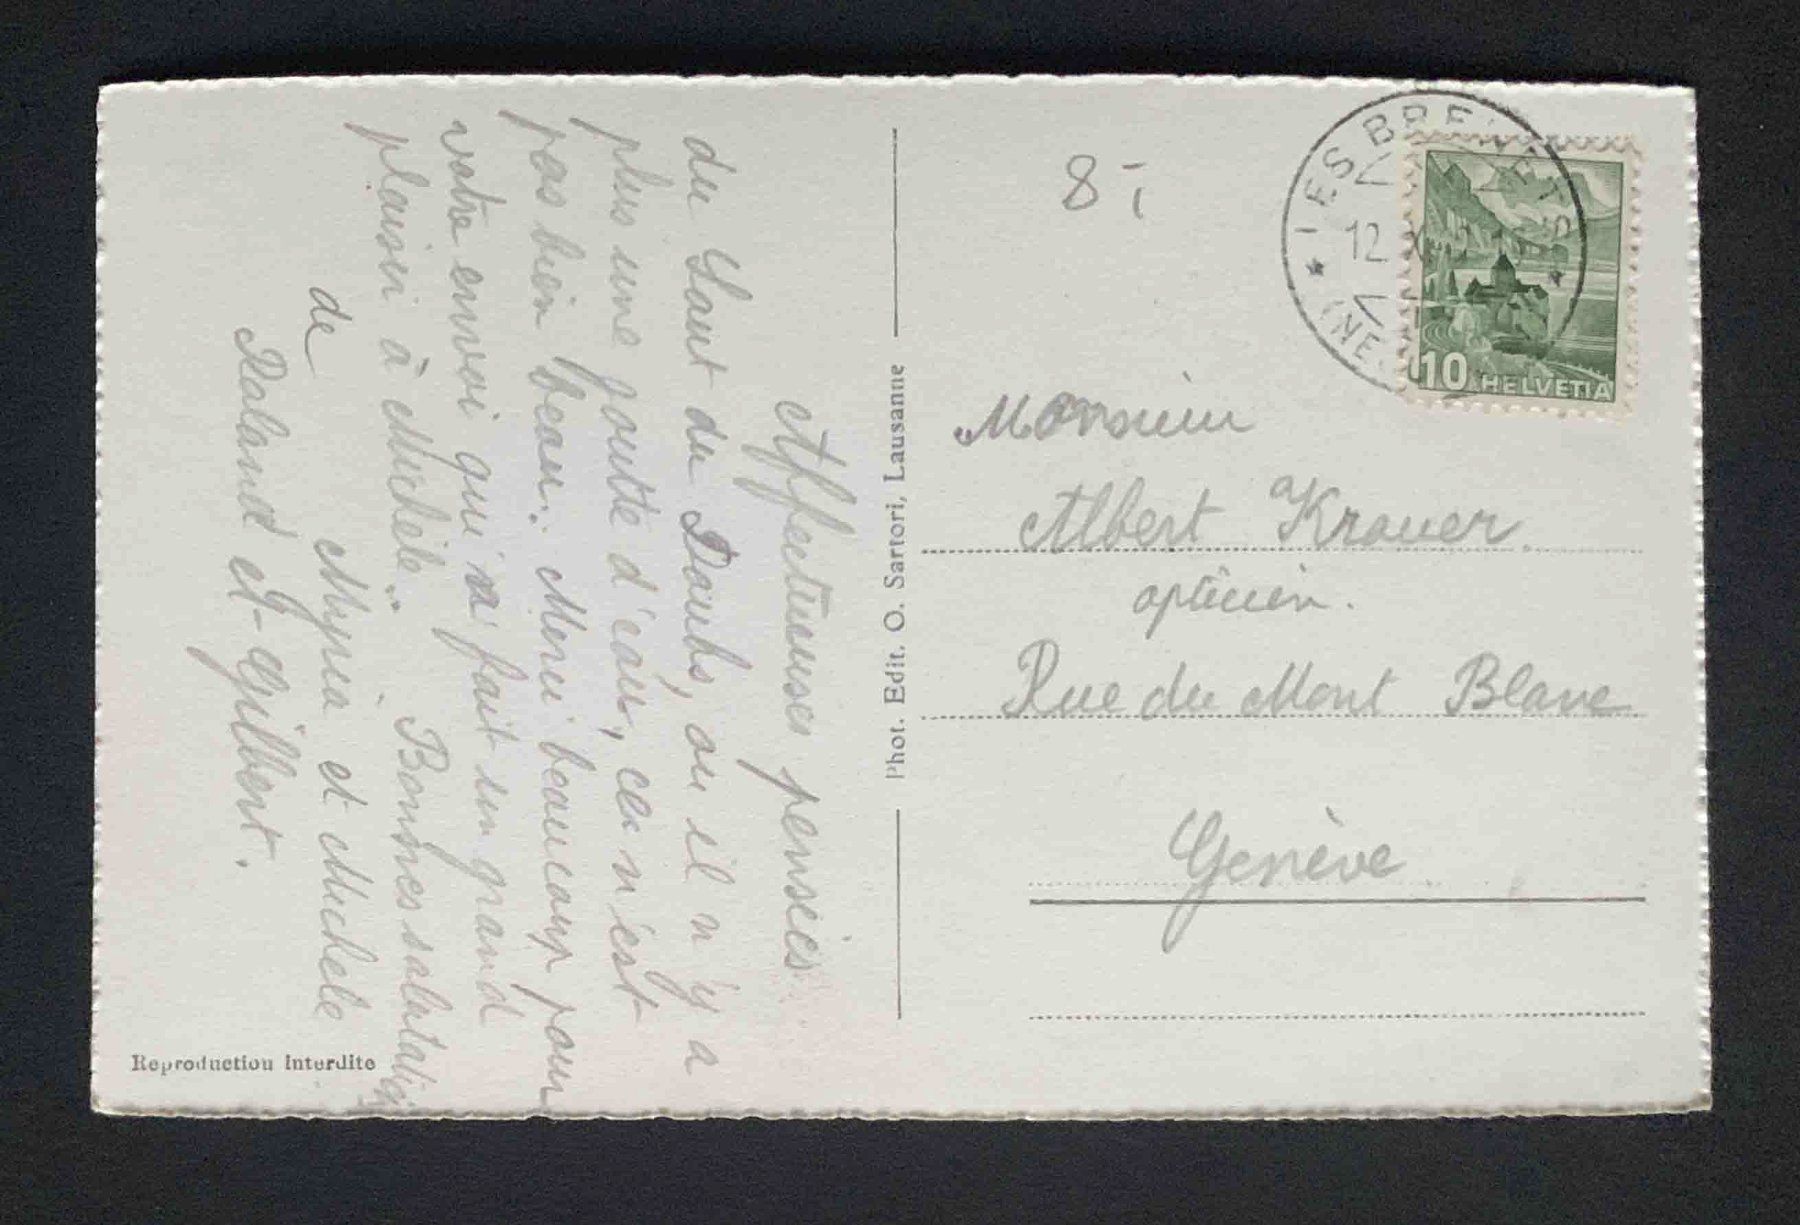 Affectueuses pensées
du Saut du Doubs, ou il n'y a
plus une goutte d'eau, ce n'est
pas bien beau. Merci beaucoup pour
votre envoi qui a fait un grand
plaisir à Michèle. Bonnes salutations
de Myria et Michele
Roland et Gilbert.
Reproduction interdite
Phot. Edit. O. Sartori, Lausanne
8
LES BRENETS
12
(NE
10 HELVETIA
Monsieur
Albert Krauer.
opticien.
Rue du Mont Blanc
Genève